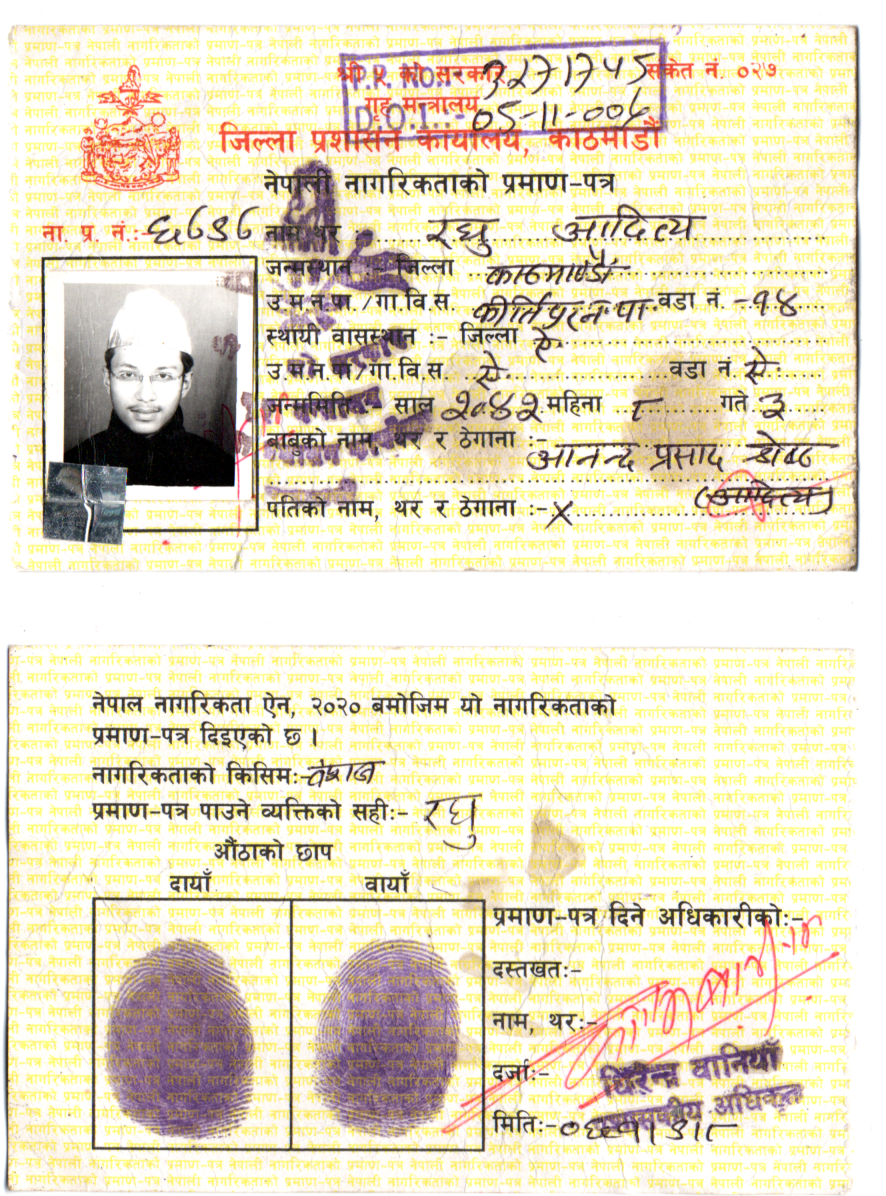 श्री ५ को सरकार
संकेत नं. ०२७
P.P. NO. 3271745
गृह मन्त्रालय
D.O.I. 05-11-006
जिल्ला प्रशासन कार्यालय, काठमाडौं
नेपाली नागरिकताको प्रमाण-पत्र
ना. प्र. नं.:-
नाम थर रघु आदित्य
जन्मस्थान :- जिल्ला काठमाण्डौ
उ.म.न.पा./गा.वि.स. कीर्तिपुर न पा वडा नं. - १४
स्थायी वासस्थान :- जिल्ला ऐ.
उ.म.न.पा/गा.वि.स. ऐ. वडा नं. ऐ.
जन्ममिति :- साल २०४२ महिना ८ गते ३
बाबुको नाम, थर र ठेगाना :-
आनन्द प्रसाद श्रेष्ठ
(आदित्य)
पतिको नाम, थर र ठेगाना :- X
नेपाल नागरिकता ऐन, २०२० बमोजिम यो नागरिकताको
प्रमाण-पत्र दिइएको छ ।
नागरिकताको किसिम:- वंशज
प्रमाण-पत्र पाउने व्यक्तिको सही:- रघु
औंठाको छाप
दायाँ वायाँ
प्रमाण-पत्र दिने अधिकारीको:-
दस्तखत:-
नाम, थर:-
दर्जा:- धिरेन्द्र वानियाँ
प्रशासकीय अधिकृत
मिति:-